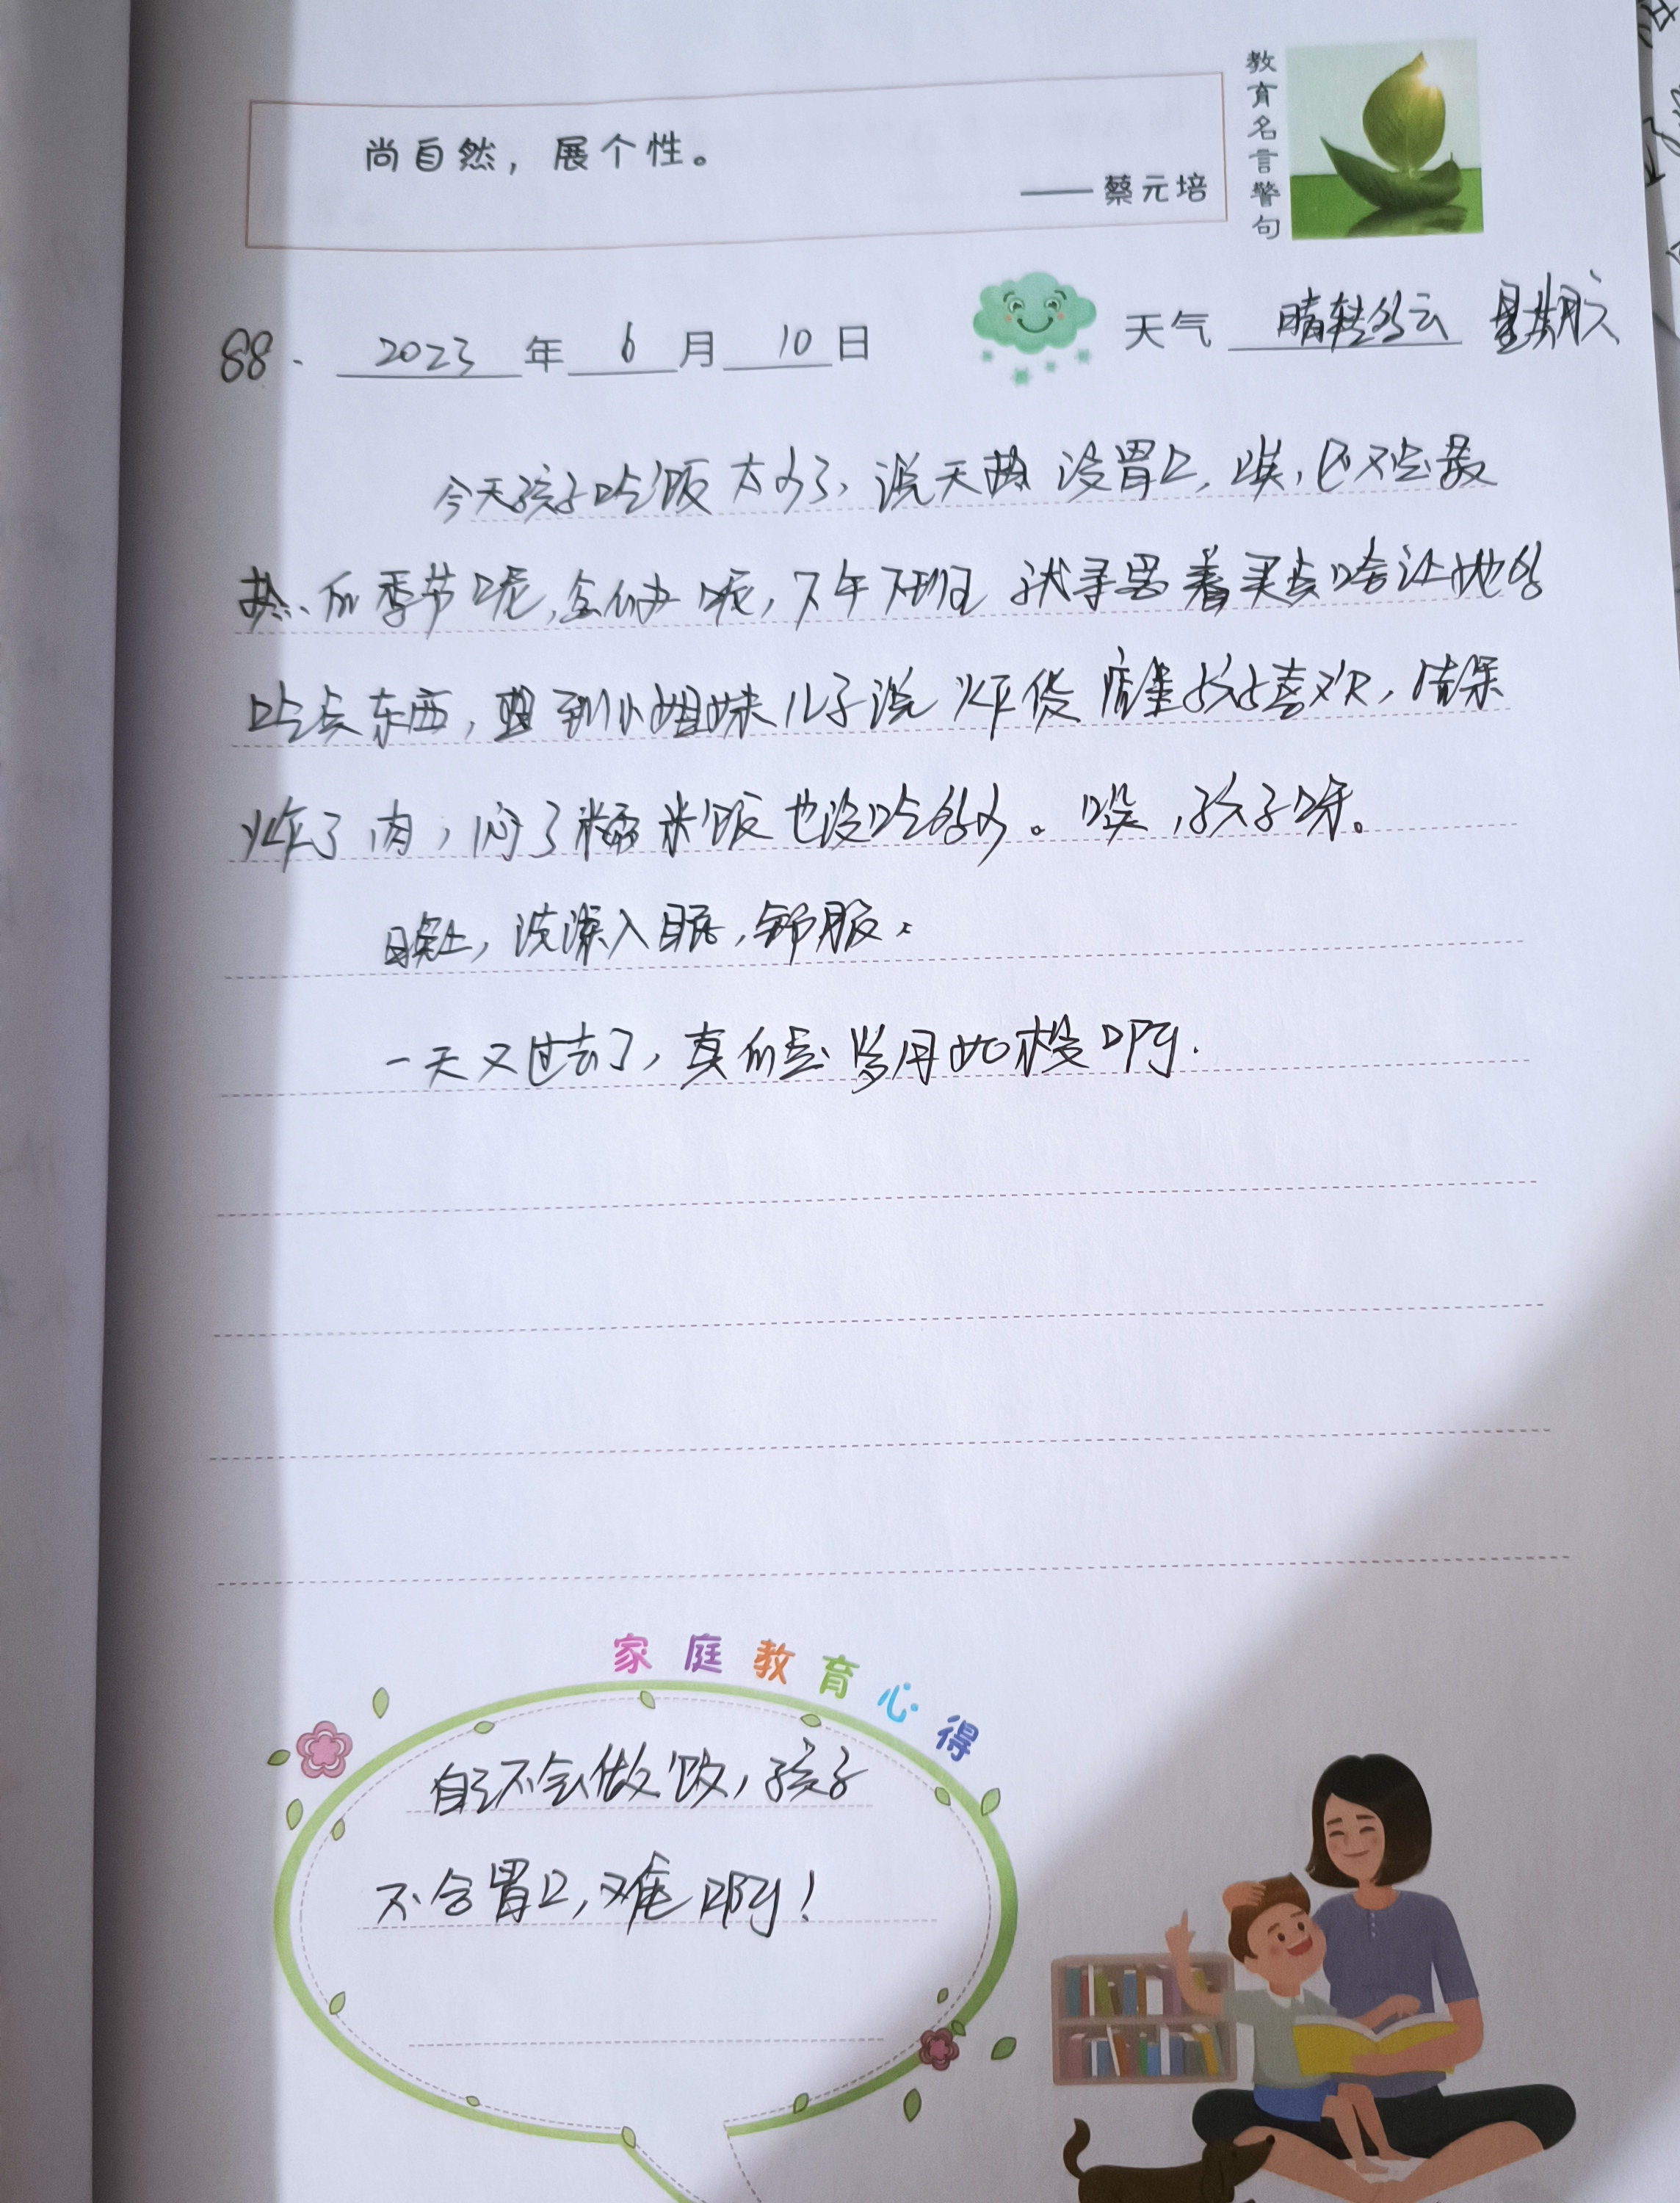 教育名言警句
尚自然，展个性。
——蔡元培
88. 2023年6月10日 天气 晴转多云 星期六
今天孩子吃饭太少了，说天热没胃口，唉，还不是最
热的季节呢，怎么办呢，下午下班 我寻思着买点啥让她多
吃点东西，想到小姐妹儿子说炸货店里孩子喜欢，结果
炸了肉，闷了糯米饭也没吃多少。唉，孩子呀。
晚上，洗澡入眠，舒服。
一天又过去了，真的是岁月如梭啊.
家庭教育心得
自己不会做饭，孩子
不合胃口，难啊！